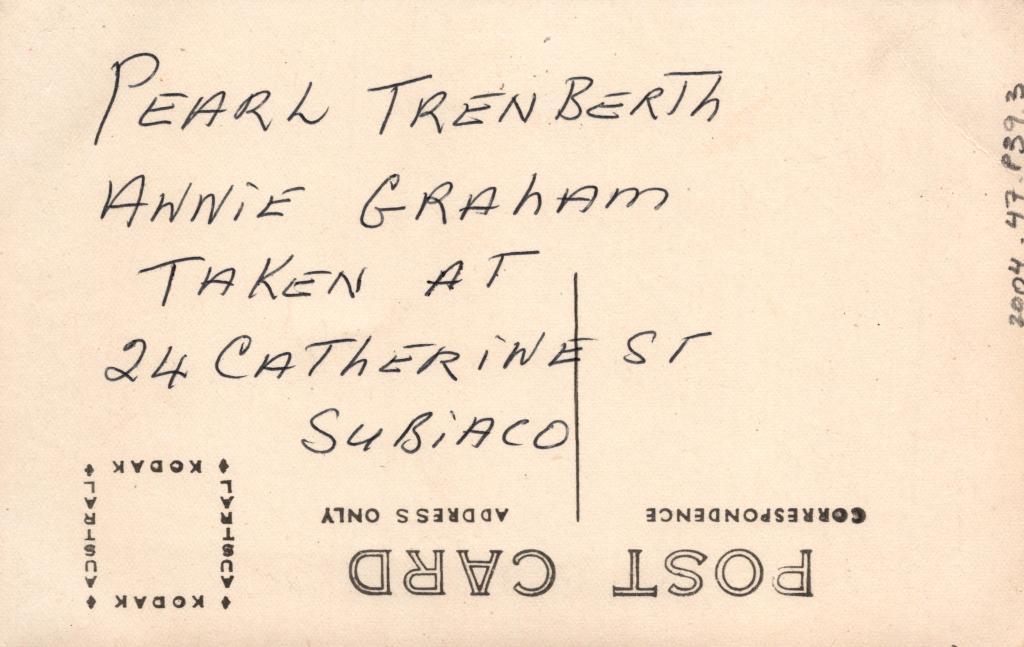 PEARL TRENBERTH
ANNiE GRAhAM
TAKEN AT
24 CATHERiNE ST
SUBiACO
2004.47.P39.3
KODAK
AUSTRAL
AUSTRAL
KODAK
CORRESPONDENCE
ADDRESS ONLY
POST CARD